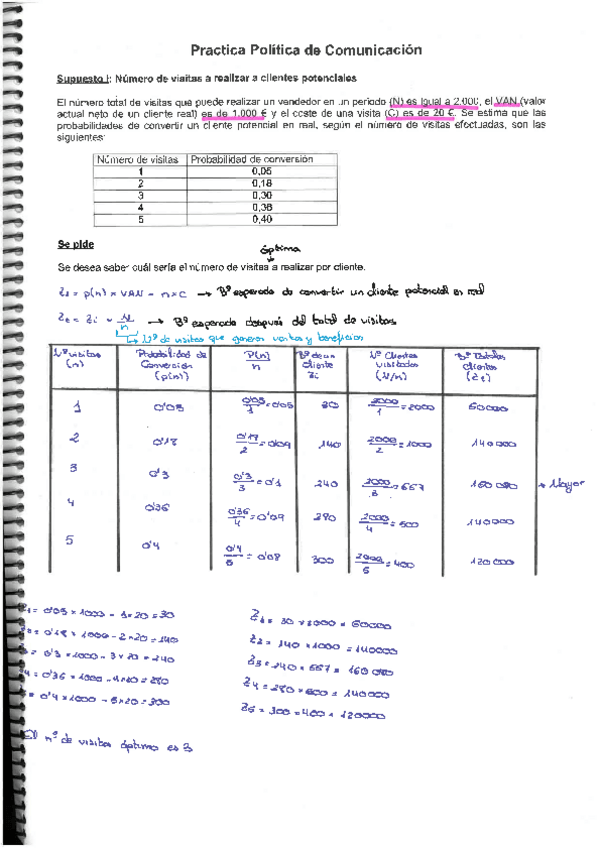 Practica Política de Comunicación
Supuesto I: Número de visitas a realizar a clientes potenciales
El número total de visitas que puede realizar un vendedor en un periodo (N) es igual a 2.000, el VAN (valor
actual neto de un cliente real) es de 1.000 € y el coste de una visita (C) es de 20 €. Se estima que las
probabilidades de convertir un cliente potencial en real, según el número de visitas efectuadas, son las
siguientes:
Número de visitas Probabilidad de conversión
1 0,05
2 0,18
3 0,30
4 0,36
5 0,40
Se pide
óptima
Se desea saber cuál sería el número de visitas a realizar por cliente.
Zi = p(n) x VAN - n x C → Bº esperado de convertir un cliente potencial en real
Zt = Zi x N/n → Bº esperado después del total de visitas
Nº de visitas que generes ventas y beneficios
Nº visitas (n) Probabilidad de Conversión (p(n)) P(n)/n Bº de un cliente Zi Nº Clientes visitados (N/n) Bº Totales clientes (Zt)
1 0'05 0'05/1 = 0'05 30 2000/1 = 2000 60000
2 0'18 0'18/2 = 0'09 140 2000/2 = 1000 140000
3 0'3 0'3/3 = 0'1 240 2000/3 = 667 160 080 → Mayor
4 0'36 0'36/4 = 0'09 280 2000/4 = 500 140000
5 0'4 0'4/5 = 0'08 300 2000/5 = 400 120000
Z1 = 0'05 x 1000 - 1x20 = 30 Z1 = 30 x 2000 = 60000
= 0'18 x 1000 - 2x20 = 140 Z2 = 140 x 1000 = 140000
= 0'3 x 1000 - 3x20 = 240 Z3 = 240 x 667 = 160 080
4 = 0'36 x 1000 - 4x20 = 280 Z4 = 280 x 500 = 140000
= 0'4 x 1000 - 5x20 = 300 Z5 = 300 x 400 = 120000
El nº de visitas óptimo es 3